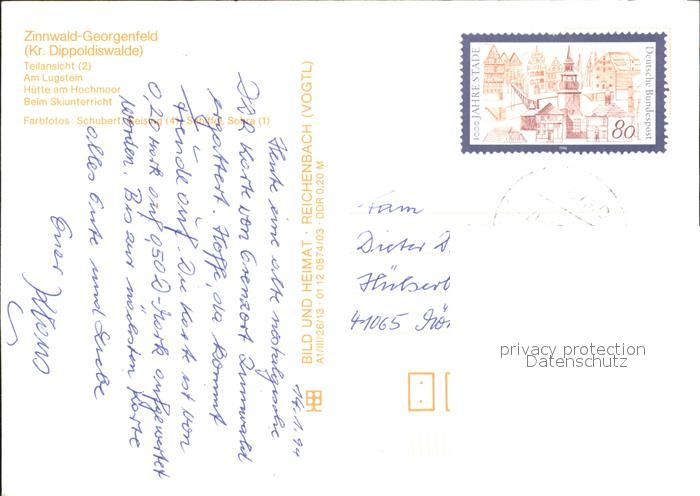 Zinnwald-Georgenfeld
(Kr. Dippoldiswalde)
Teilansicht (2)
Am Lugstein
Hütte am Hochmoor
Beim Skiunterricht
Farbfotos: Schubert, (4), Schüffel, Sobra (1)
BILD UND HEIMAT · REICHENBACH (VOGTL)
A1/III/26/13 · 01 12 0874/03 · DDR 0,20 M
14.1.94
Heute eine alte nostalgische
DDR Karte von Grenzort Zinnwald
ergattert. Hoffe, da kommt
Freude auf. Die Karte ist von
0,20 Mark auf 0,50 D-Mark aufgewertet
worden. Bis zur nächsten Karte
alles Gute und Liebe
Euer
1000 JAHRE STADE
Deutsche Bundespost
80
Fam
Dieter D.
41065
privacy protection
Datenschutz